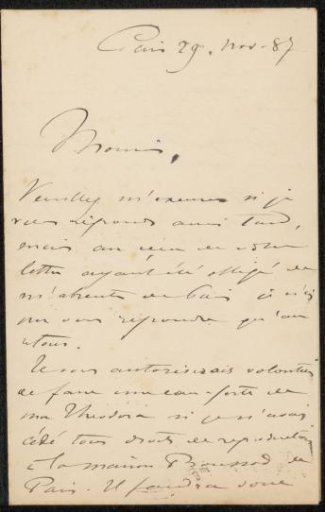 Paris 29. Nov. 87
Monsieur,
Veuillez m'excuser si je
vous réponds aussi tard,
mais au reçu de votre
lettre ayant été obligé de
m'absenter de Paris je n'ai
pu vous répondre qu'au
retour.
Je vous autoriserais volontiers
de faire une eau-forte de
ma Théodora si je n'avais
cédé tous droits de reproduction
à la maison Boussod de
Paris. Il faudra donc